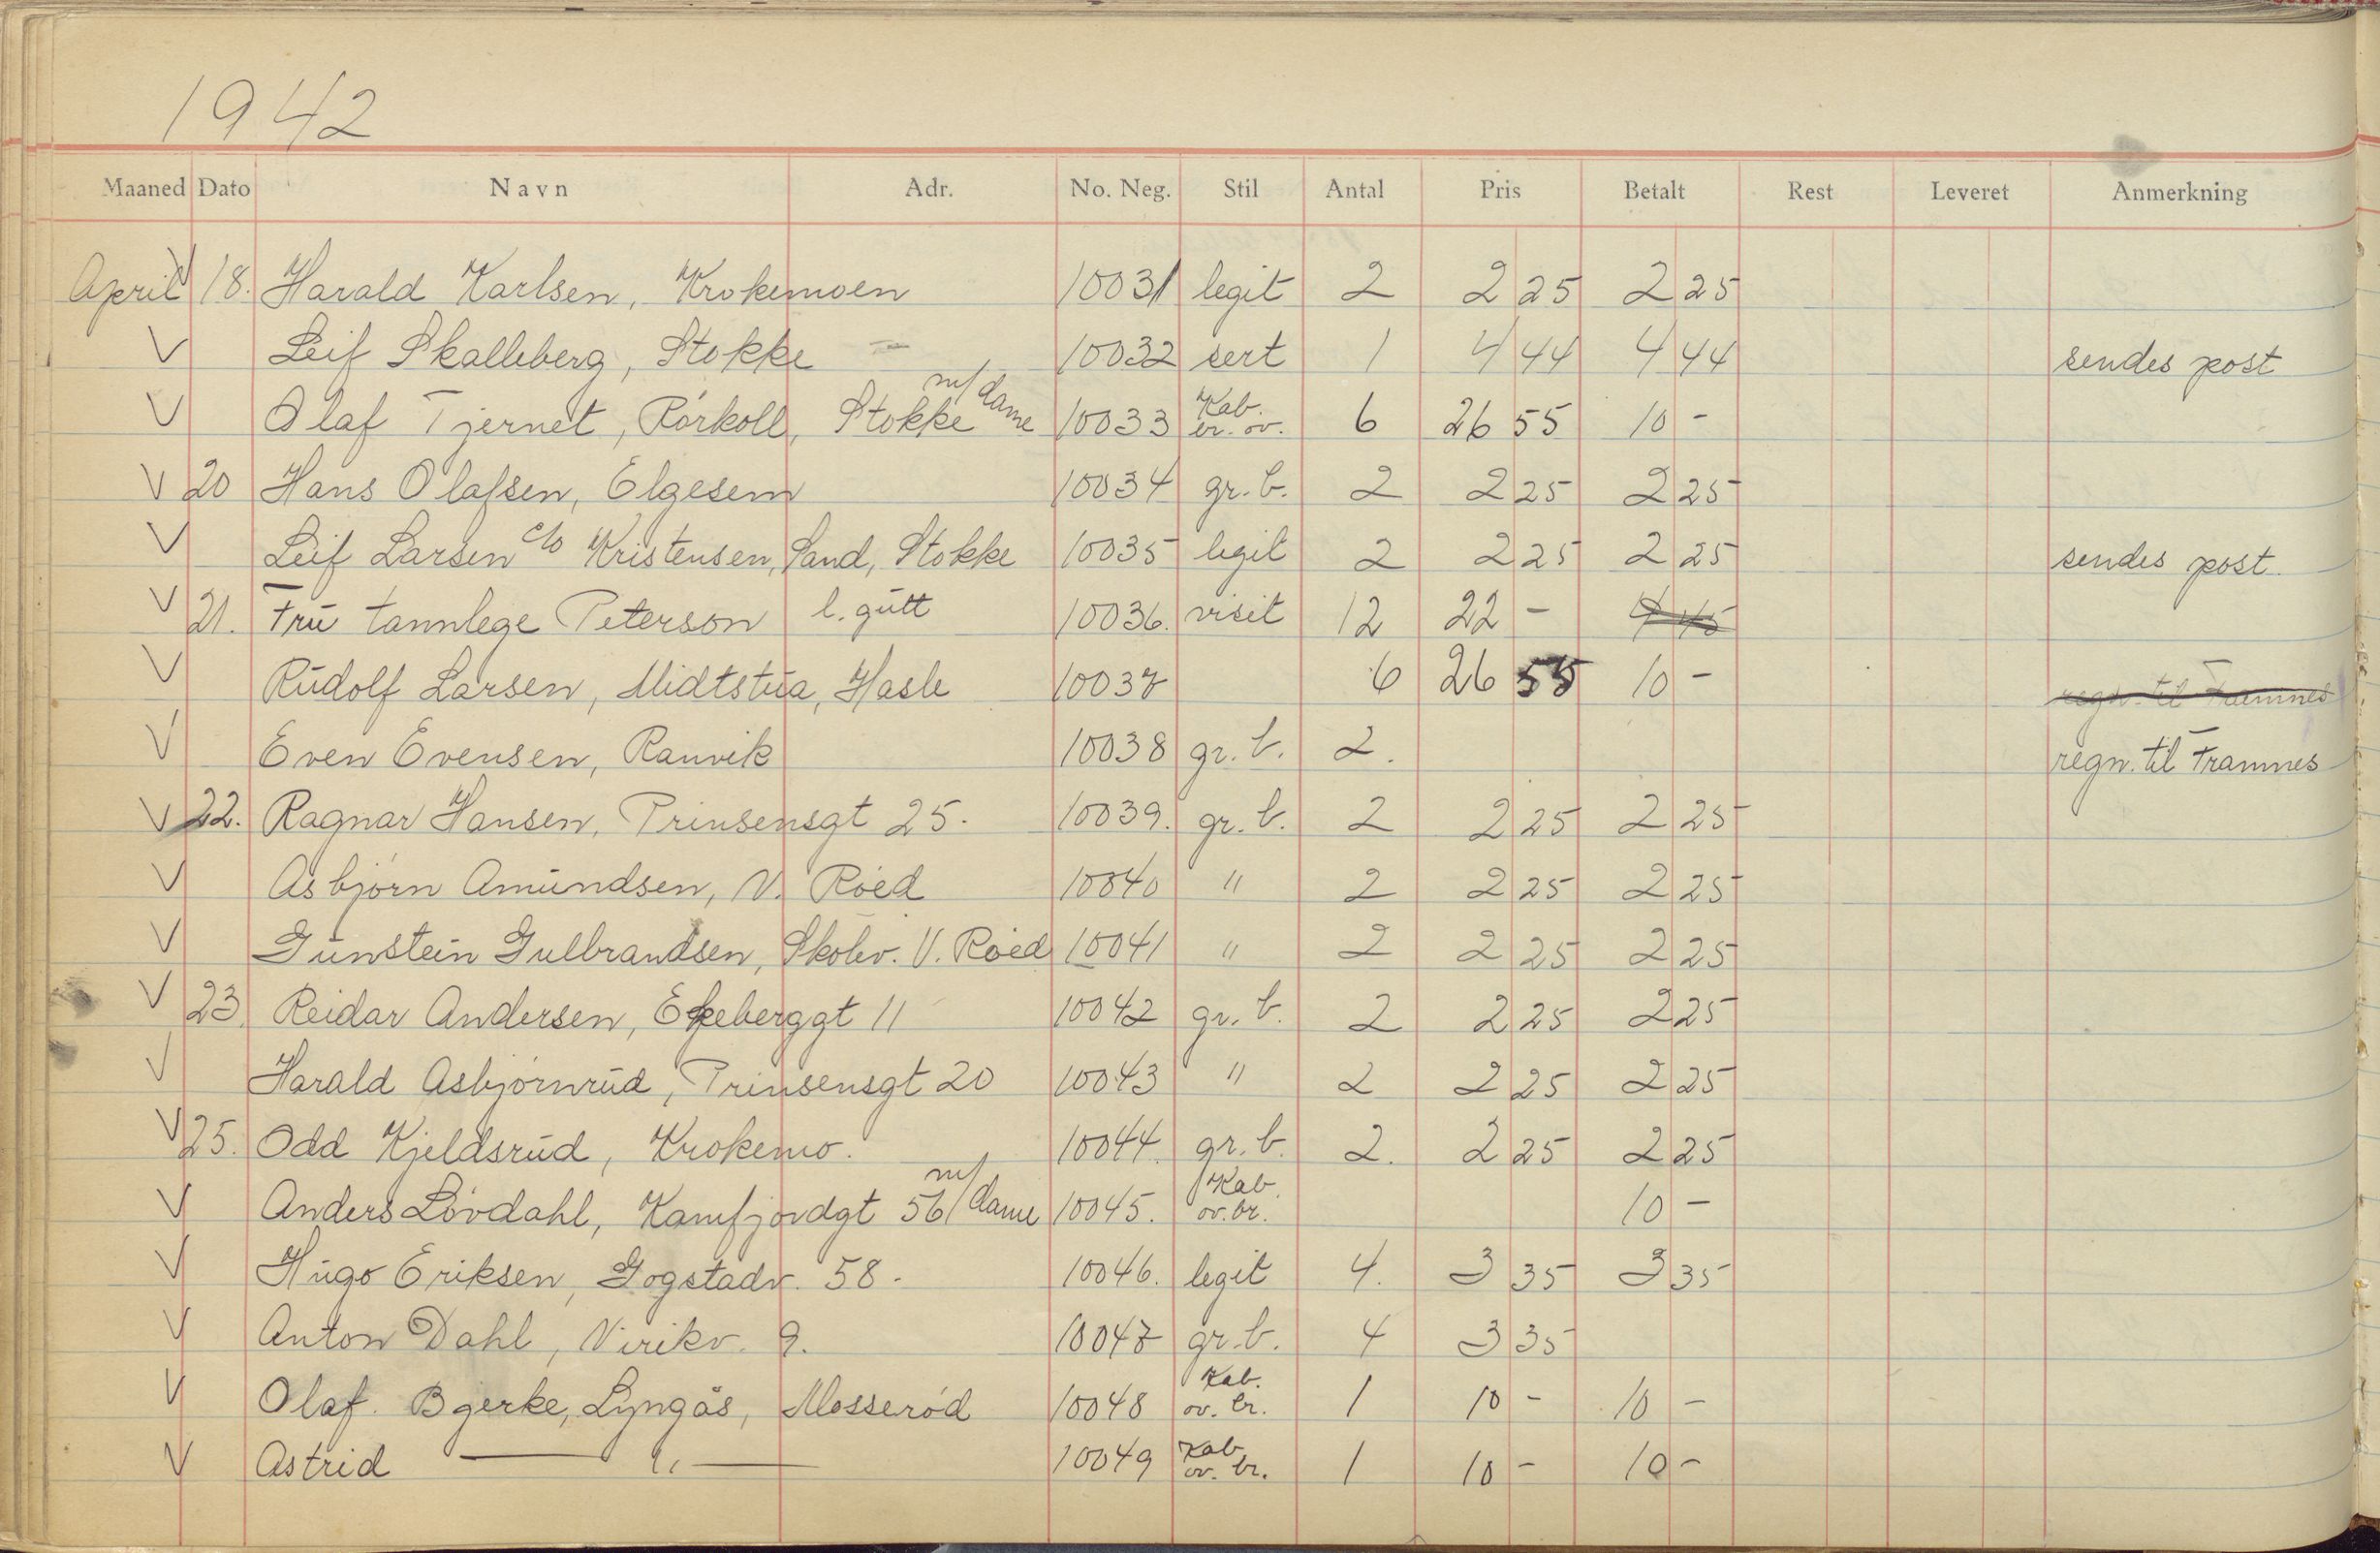 1942
Maaned Dato Navn Adr. No. Neg. Stil Antal Pris Betalt Rest Leveret Anmerkning
April V 18. Harald Karlsen, Krokemoen 10031 legit 2 2 25 2 25
V Leif Skalleberg, Stokke 10032 sert 1 4 44 4 44 sendes post
V Olaf Tjernet, Rörkoll, Stokke m/dame 10033 Kab. br. ov. 6 26 55 10 -
V 20 Hans Olafsen, Elgesem 10034 gr. b. 2 2 25 2 25
V Leif Larsen c/o Kristensen, Sand, Stokke 10035 legit 2 2 25 2 25 sendes post
V 21. Fru tannlege Peterson l. gutt 10036. visit 12 22 -
V Rudolf Larsen, Midtstua, Hasle 10037 6 26 55 10 - regn. til Framnes
V Even Evensen, Ranvik 10038 gr. b. 2. regn. til Framnes
V 22. Ragnar Hansen, Prinsensgt 25. 10039. gr. b. 2 2 25 2 25
V Asbjörn Amundsen, V. Röed 10040 " 2 2 25 2 25
V Gunstein Gulbrandsen, Skolev. V. Röed 10041 " 2 2 25 2 25
V 23. Reidar Andersen, Ekeberggt 11 10042 gr. b. 2 2 25 2 25
V Harald Asbjörnrud, Prinsensgt 20 10043 " 2 2 25 2 25
V 25. Odd Kjeldsrud, Krokemo. 10044. gr. b. 2. 2 25 2 25
V Anders Lövdahl, Kamfjordgt 56 m/dame 10045. Kab. ov. br. 10 -
V Hugo Eriksen, Gogstadv. 58. 10046. legit 4. 3 35 3 35
V Anton Dahl, Virikv. 9. 10047 gr. b. 4 3 35
V Olaf Bjerke, Lyngås, Mosseröd 10048 Kab. ov. br. 1 10 - 10 -
V Astrid — " — 10049 Kab. ov. br. 1 10 - 10 -